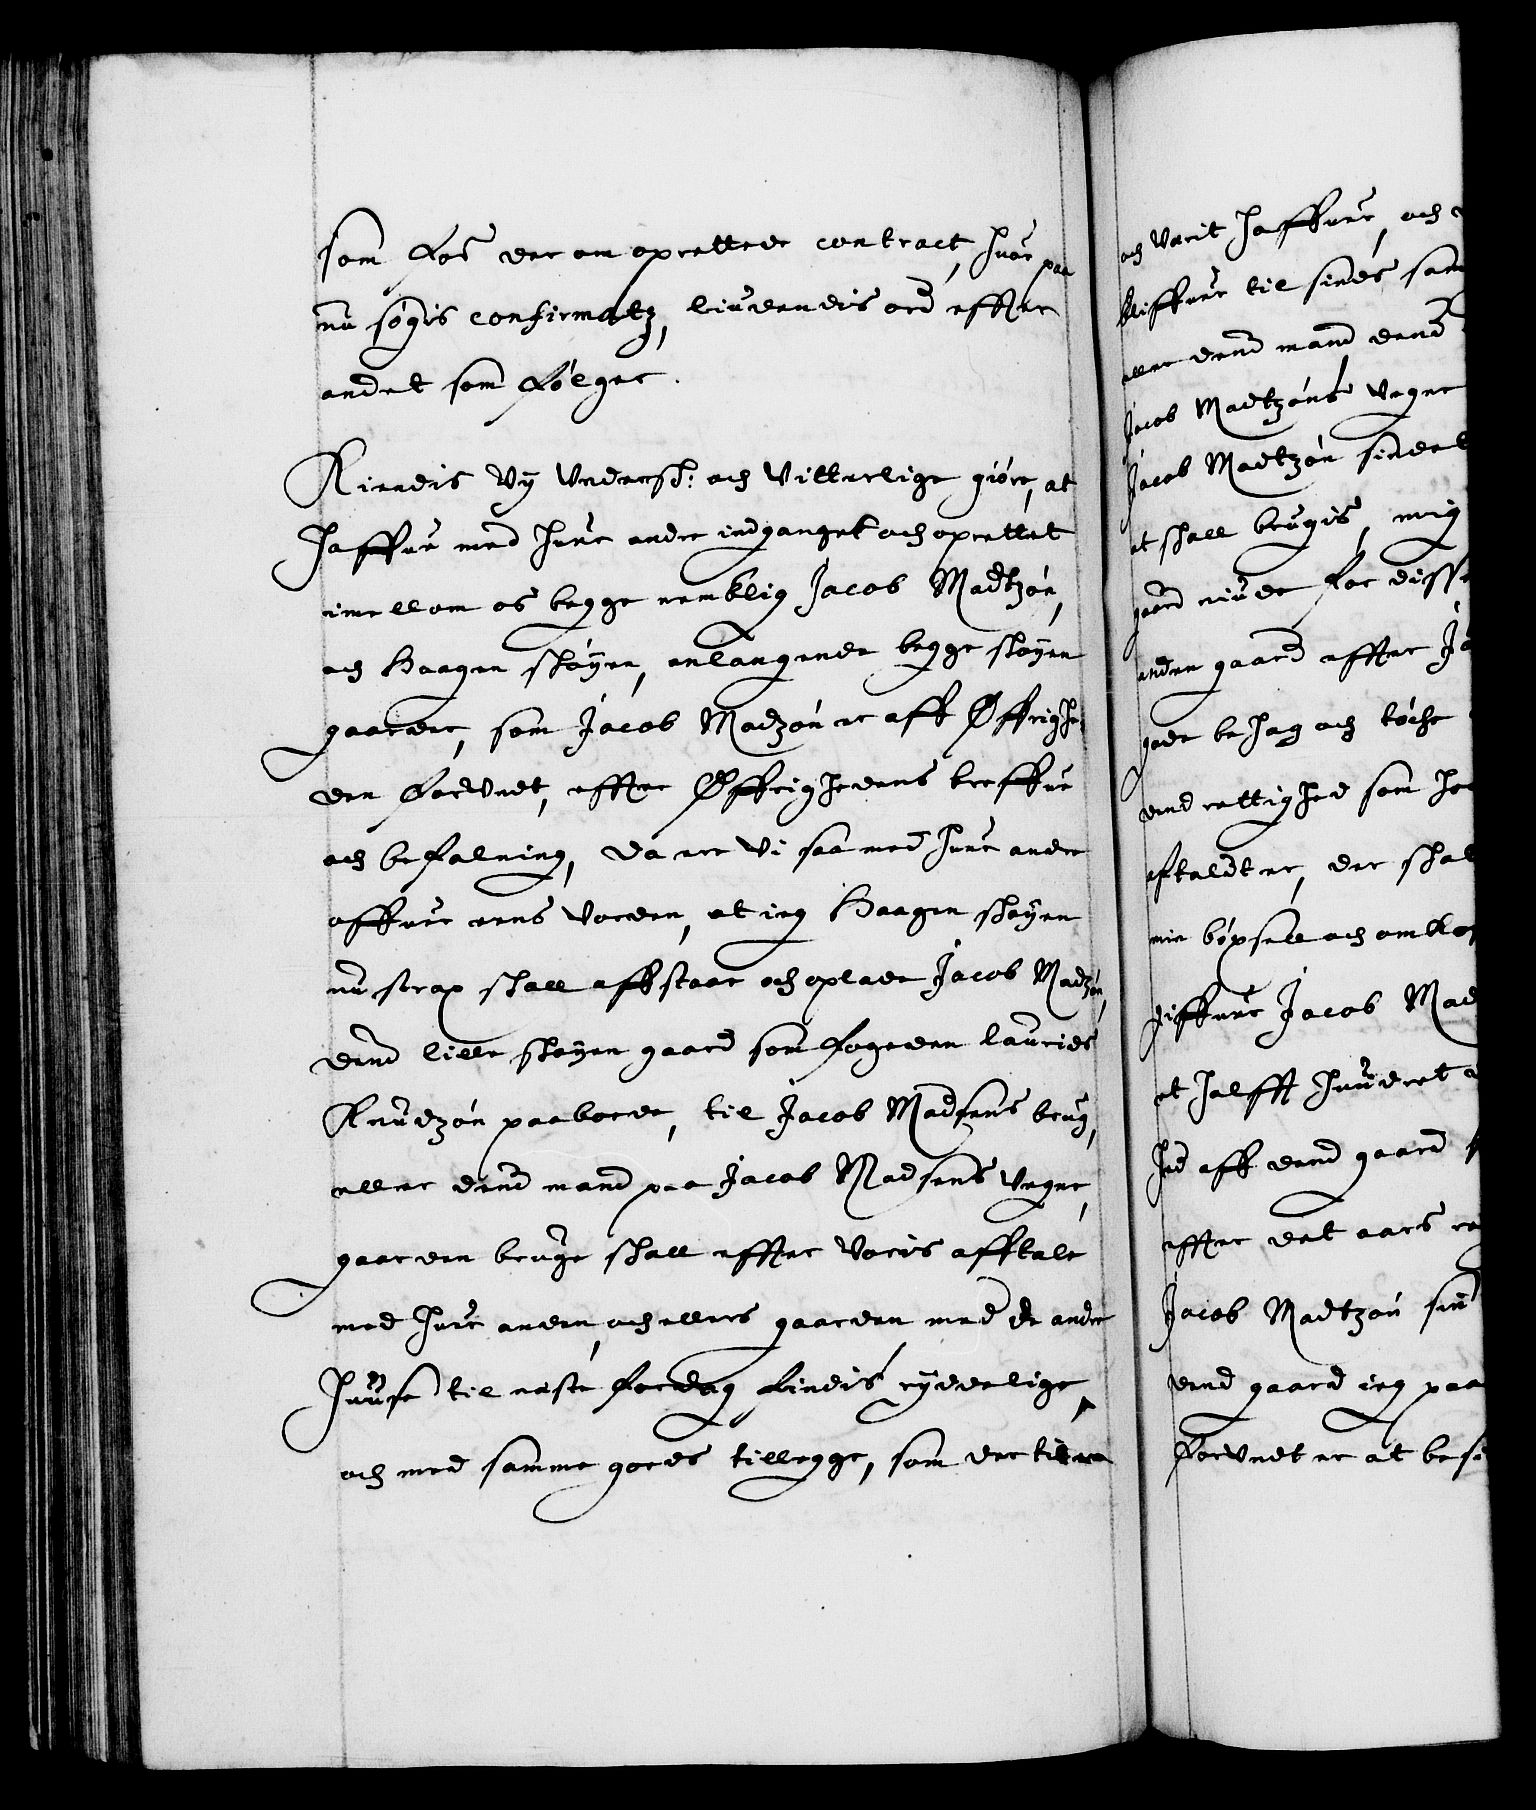 som for der om oprettede contract, huor paa
nu søgis confirmatz, liudendis ord effter
andet som følger.
Kiendis vÿ undersch: och vitterlige giøre, at
haffue med huer andre indganget och oprettet
imellom os begge nemblig Jacob Madtzøn,
och Haagen Skøyen, anlangende begge Skøyen
gaarder, som Jacob Madzøn er aff Øffrighe-
den forundt, effter Øffrighedens breffue
och befalning, da ere vi saa med huer andre
offuer eens vorden, at ieg Haagen Skøyen
nu strax skall affstaae och oplade Jacob Madzøn,
dend lille Skøyen gaard som fogeden Laurids
Knudzøn paaboede, til Jacob Madsens brug,
eller dend mand paa Jacob Madsens vegne,
gaarden bruge skall effter voris afftale
med huer anden, och ellers gaarden med de andre
huuse til neste fardag findis rÿdelige,
och med samme goeds tillegge, som der til er
och verit haffuer, och
bliffuer til sinds sam
eller dend mand dend
Jacob Madtzøns vegne
Jacob Madtzøn sidet
et skall brugis, mig
gaard niude for disse
anden gaard effter Ja
gode behag och tøche
dend rettighed som her
aftaldt er, der skal
min bøxsell och omkos
giffuer Jacob Mad
et halfft hundret
hed aff dend gaard
effter det aars
Jacob Madtzøn sin
dend gaard ieg paa
forundt er at besi